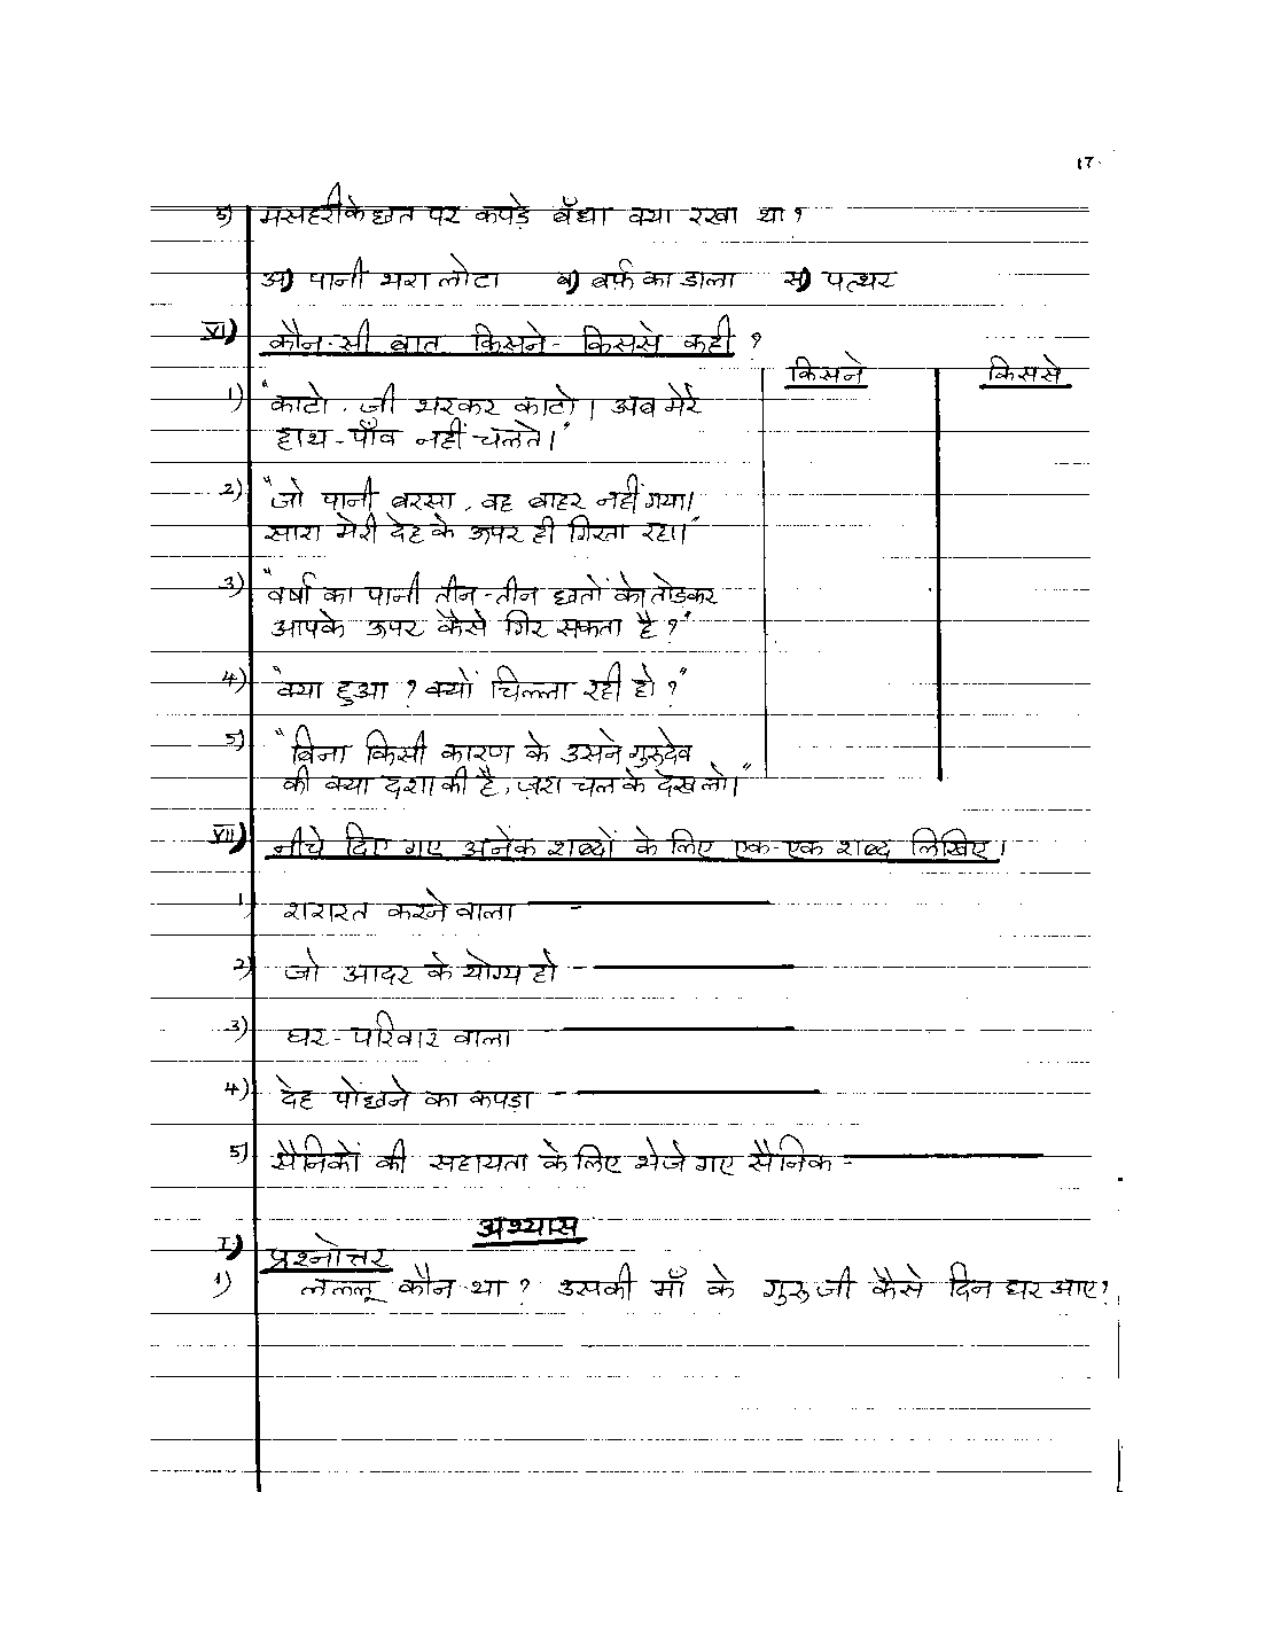 17.
5) मसहरी के छत पर कपड़े बँधा क्या रखा था ?
अ) पानी भरा लोटा ब) बर्फ का डाला स) पत्थर
VI) कौन-सी बात किसने - किससे कही ?
किसने किससे
1) "काटो, जी भरकर काटो। अब मेरे
हाथ-पाँव नहीं चलते।"
2) "जो पानी बरसा, वह बाहर नहीं गया।
सारा मेरी देह के ऊपर ही गिरता रहा।"
3) "वर्षा का पानी तीन-तीन छतों को तोड़कर
आपके ऊपर कैसे गिर सकता है ?"
4) "क्या हुआ ? क्यों चिल्ला रही हो ?"
5) "बिना किसी कारण के उसने गुरुदेव
की क्या दशा की है, ज़रा चल के देख लो।"
VII) नीचे दिए गए अनेक शब्दों के लिए एक-एक शब्द लिखिए।
1) शरारत करने वाला -
2) जो आदर के योग्य हो -
3) घर-परिवार वाला -
4) देह पोंछने का कपड़ा -
5) सैनिकों की सहायता के लिए भेजे गए सैनिक -
अभ्यास
I) प्रश्नोत्तर
1) लल्लू कौन था ? उसकी माँ के गुरुजी कैसे दिन घर आए ?